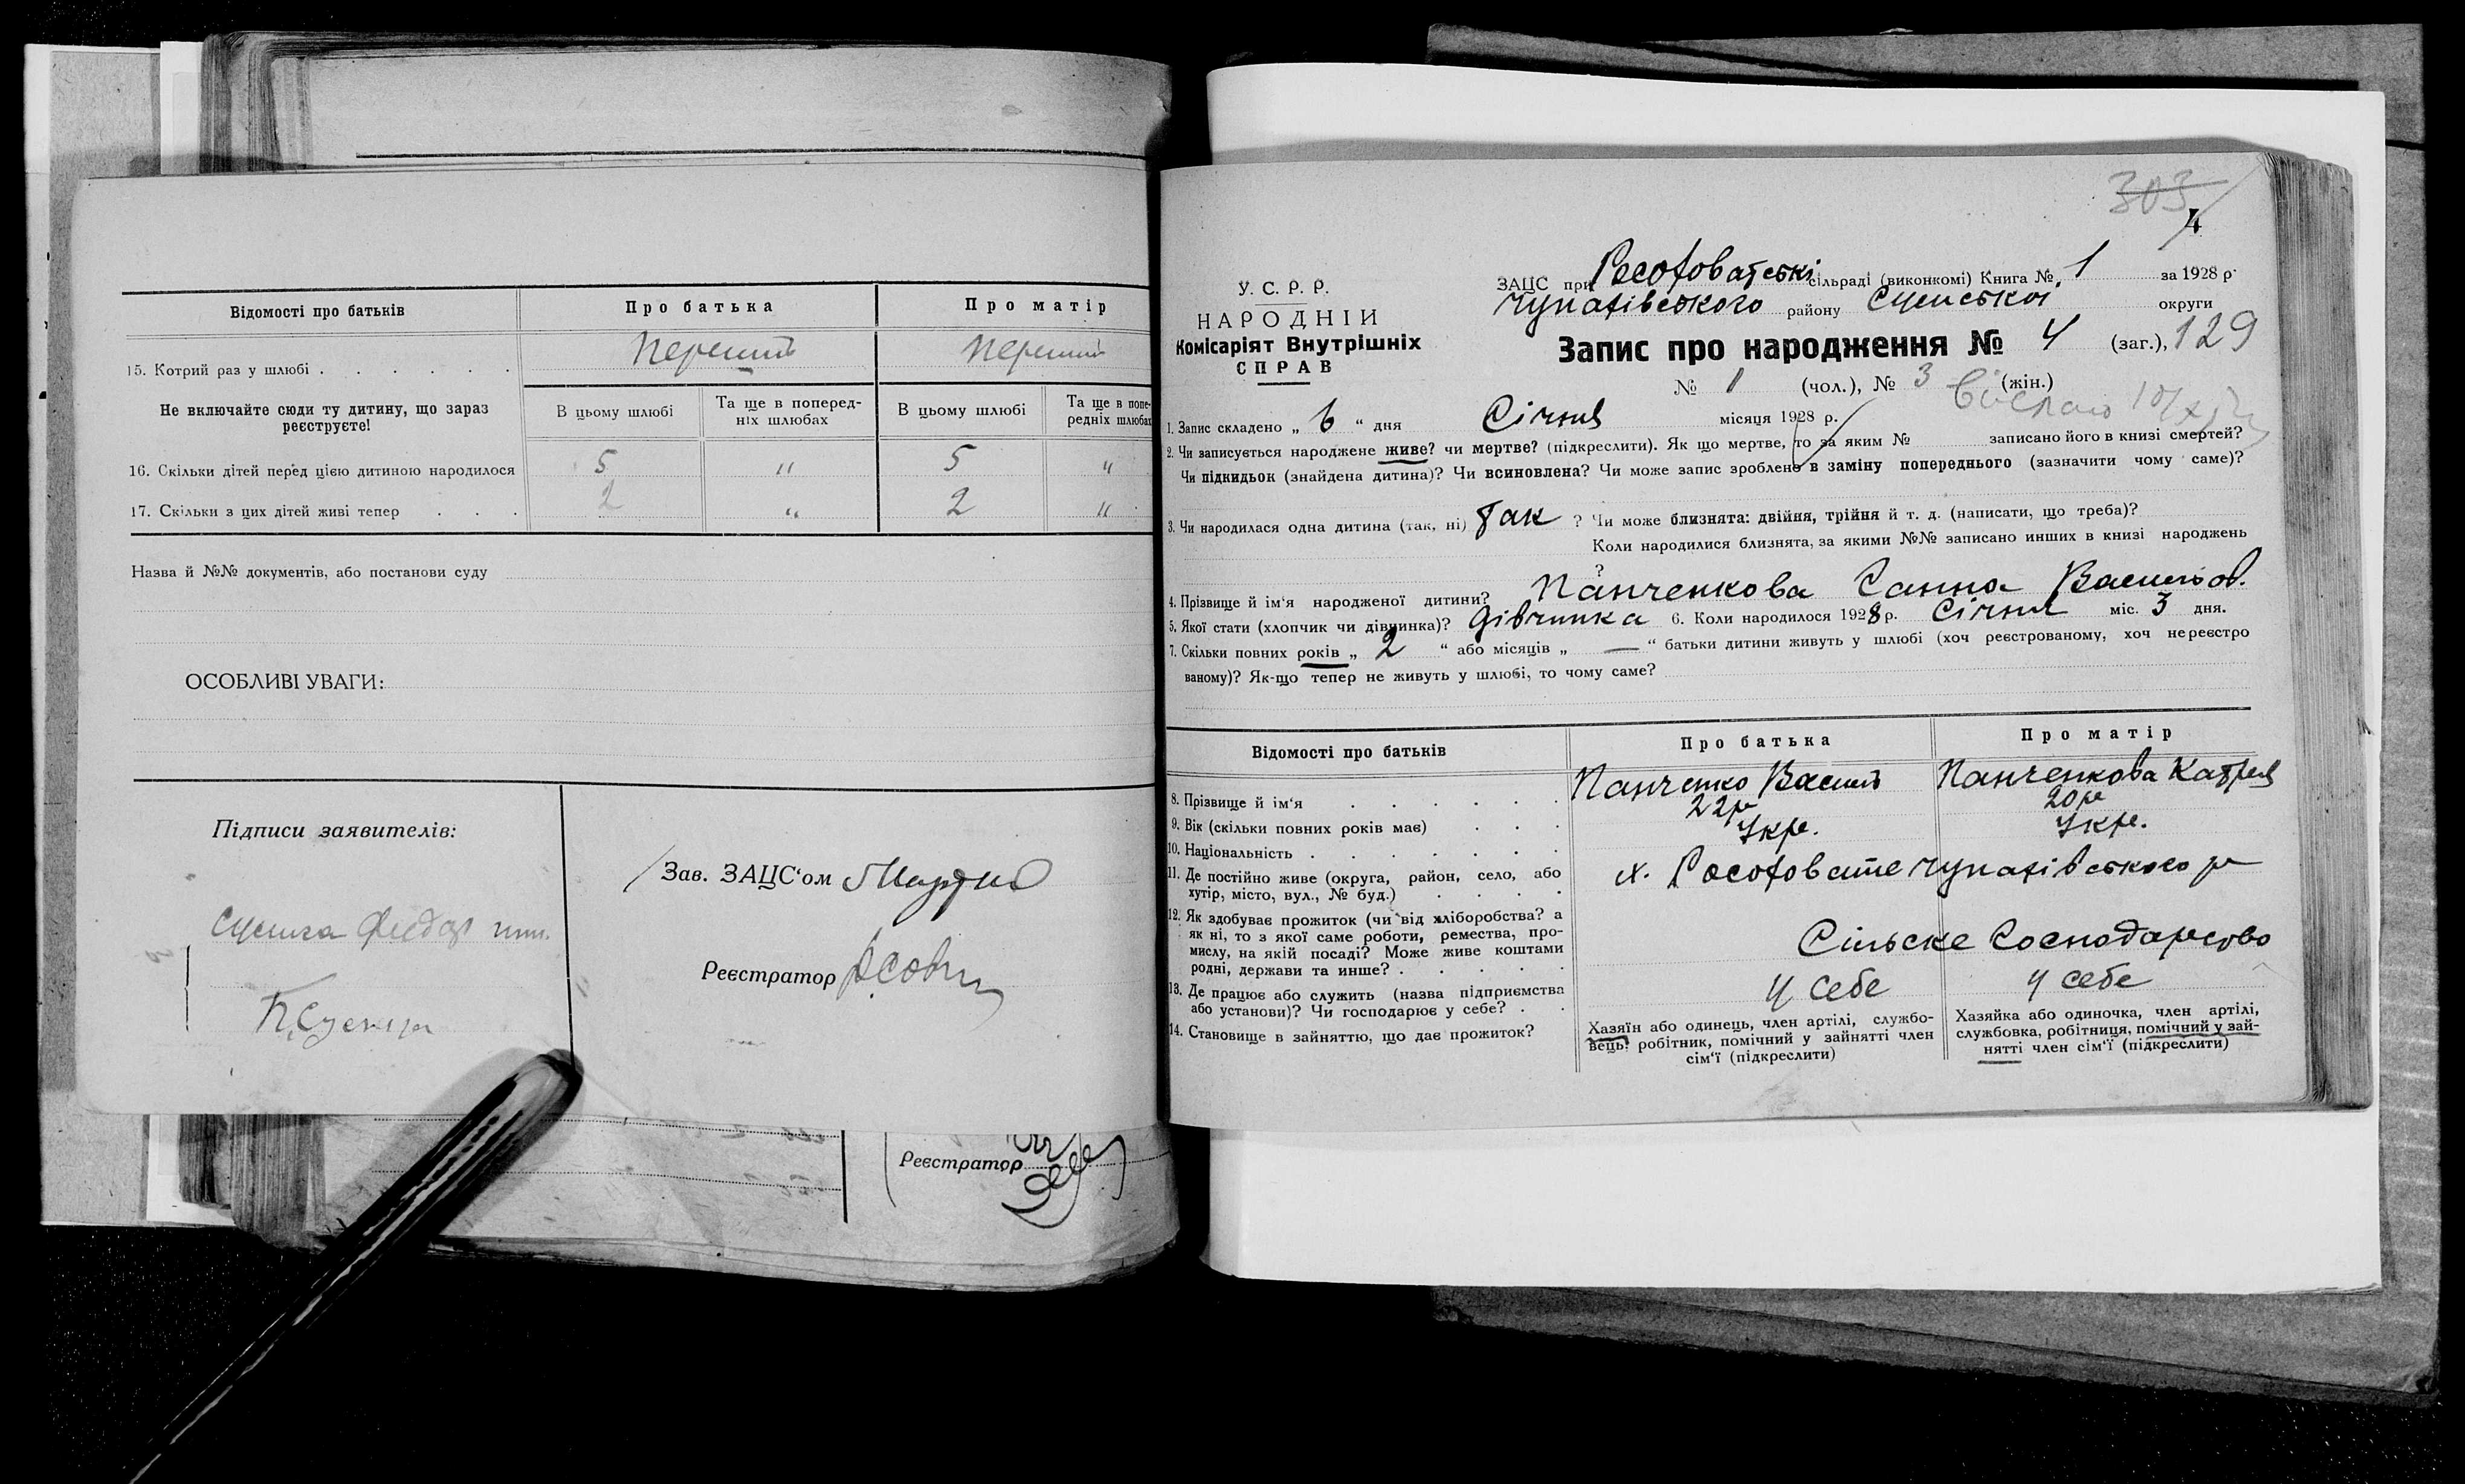 Відомості про батьків
Про батька
Про матір
15. Котрий раз у шлюбі . . . . . .
Перший
Перший
Не включайте сюди ту дитину, що зараз
реєструєте!
В цьому шлюбі
Та ще в поперед-
ніх шлюбах
В цьому шлюбі
Та ще в попе-
редніх шлюбах
16. Скільки дітей перед цією дитиною народилося
5
"
5
"
17. Скільки з цих дітей живі тепер . . .
2
"
2
"
Назва й №№ документів, або постанови суду
ОСОБЛИВІ УВАГИ:
Підписи заявителів:
Зав. ЗАЦС'ом
Реєстратор
Реєстратор
303
4
У. С. Р. Р.
НАРОДНІЙ
Комісаріят Внутрішніх
СПРАВ
ЗАЦС при сільраді (виконкомі) Книга № 1 за 1928 р.
району Сумської округи
Запис про народження № 4 (заг.), 129
№ 1 (чол.), № 3 (жін.)
1. Запис складено „ 6 “ дня Січня місяця 1928 р.
2. Чи записується народжене живе? чи мертве? (підкреслити). Як що мертве, то за яким № записано його в книзі смертей?
Чи підкидьок (знайдена дитина)? Чи всиновлена? Чи може запис зроблено в заміну попереднього (зазначити чому саме)?
3. Чи народилася одна дитина (так, ні) Так ? Чи може близнята: двійня, трійня й т. д. (написати, що треба)?
Коли народилися близнята, за якими №№ записано инших в книзі народжень
?
4. Прізвище й ім'я народженої дитини? Панченкова Ганна Васильов.
5. Якої стати (хлопчик чи дівчинка)? Дівчинка 6. Коли народилося 1928 р. Січня міс. 3 дня.
7. Скільки повних років „ 2 “ або місяців „ — “ батьки дитини живуть у шлюбі (хоч реєстрованому, хоч нереєстро
ваному)? Як-що тепер не живуть у шлюбі, то чому саме?
Відомості про батьків
Про батька
Про матір
8. Прізвище й ім'я . . . . . .
Панченко Василь
Панченкова Катря
9. Вік (скільки повних років має) . . .
22р
20р
10. Національність . . . . . . .
Укр.
Укр.
11. Де постійно живе (округа, район, село, або
хутір, місто, вул., № буд.) . . . .
х. Росоховате Чупахівського р
12. Як здобуває прожиток (чи від хліборобства? а
як ні, то з якої саме роботи, ремества, про-
мислу, на якій посаді? Може живе коштами
родні, держави та инше? . . . . .
Сільске Господарсво
13. Де працює або служить (назва підприємства
або установи)? Чи господарює у себе? . .
У себе
У себе
14. Становище в зайняттю, що дає прожиток?
Хазяїн або одинець, член артілі, службо-
вець, робітник, помічний у зайнятті член
сім'ї (підкреслити)
Хазяйка або одиночка, член артілі,
службовка, робітниця, помічний у зай-
нятті член сім'ї (підкреслити)